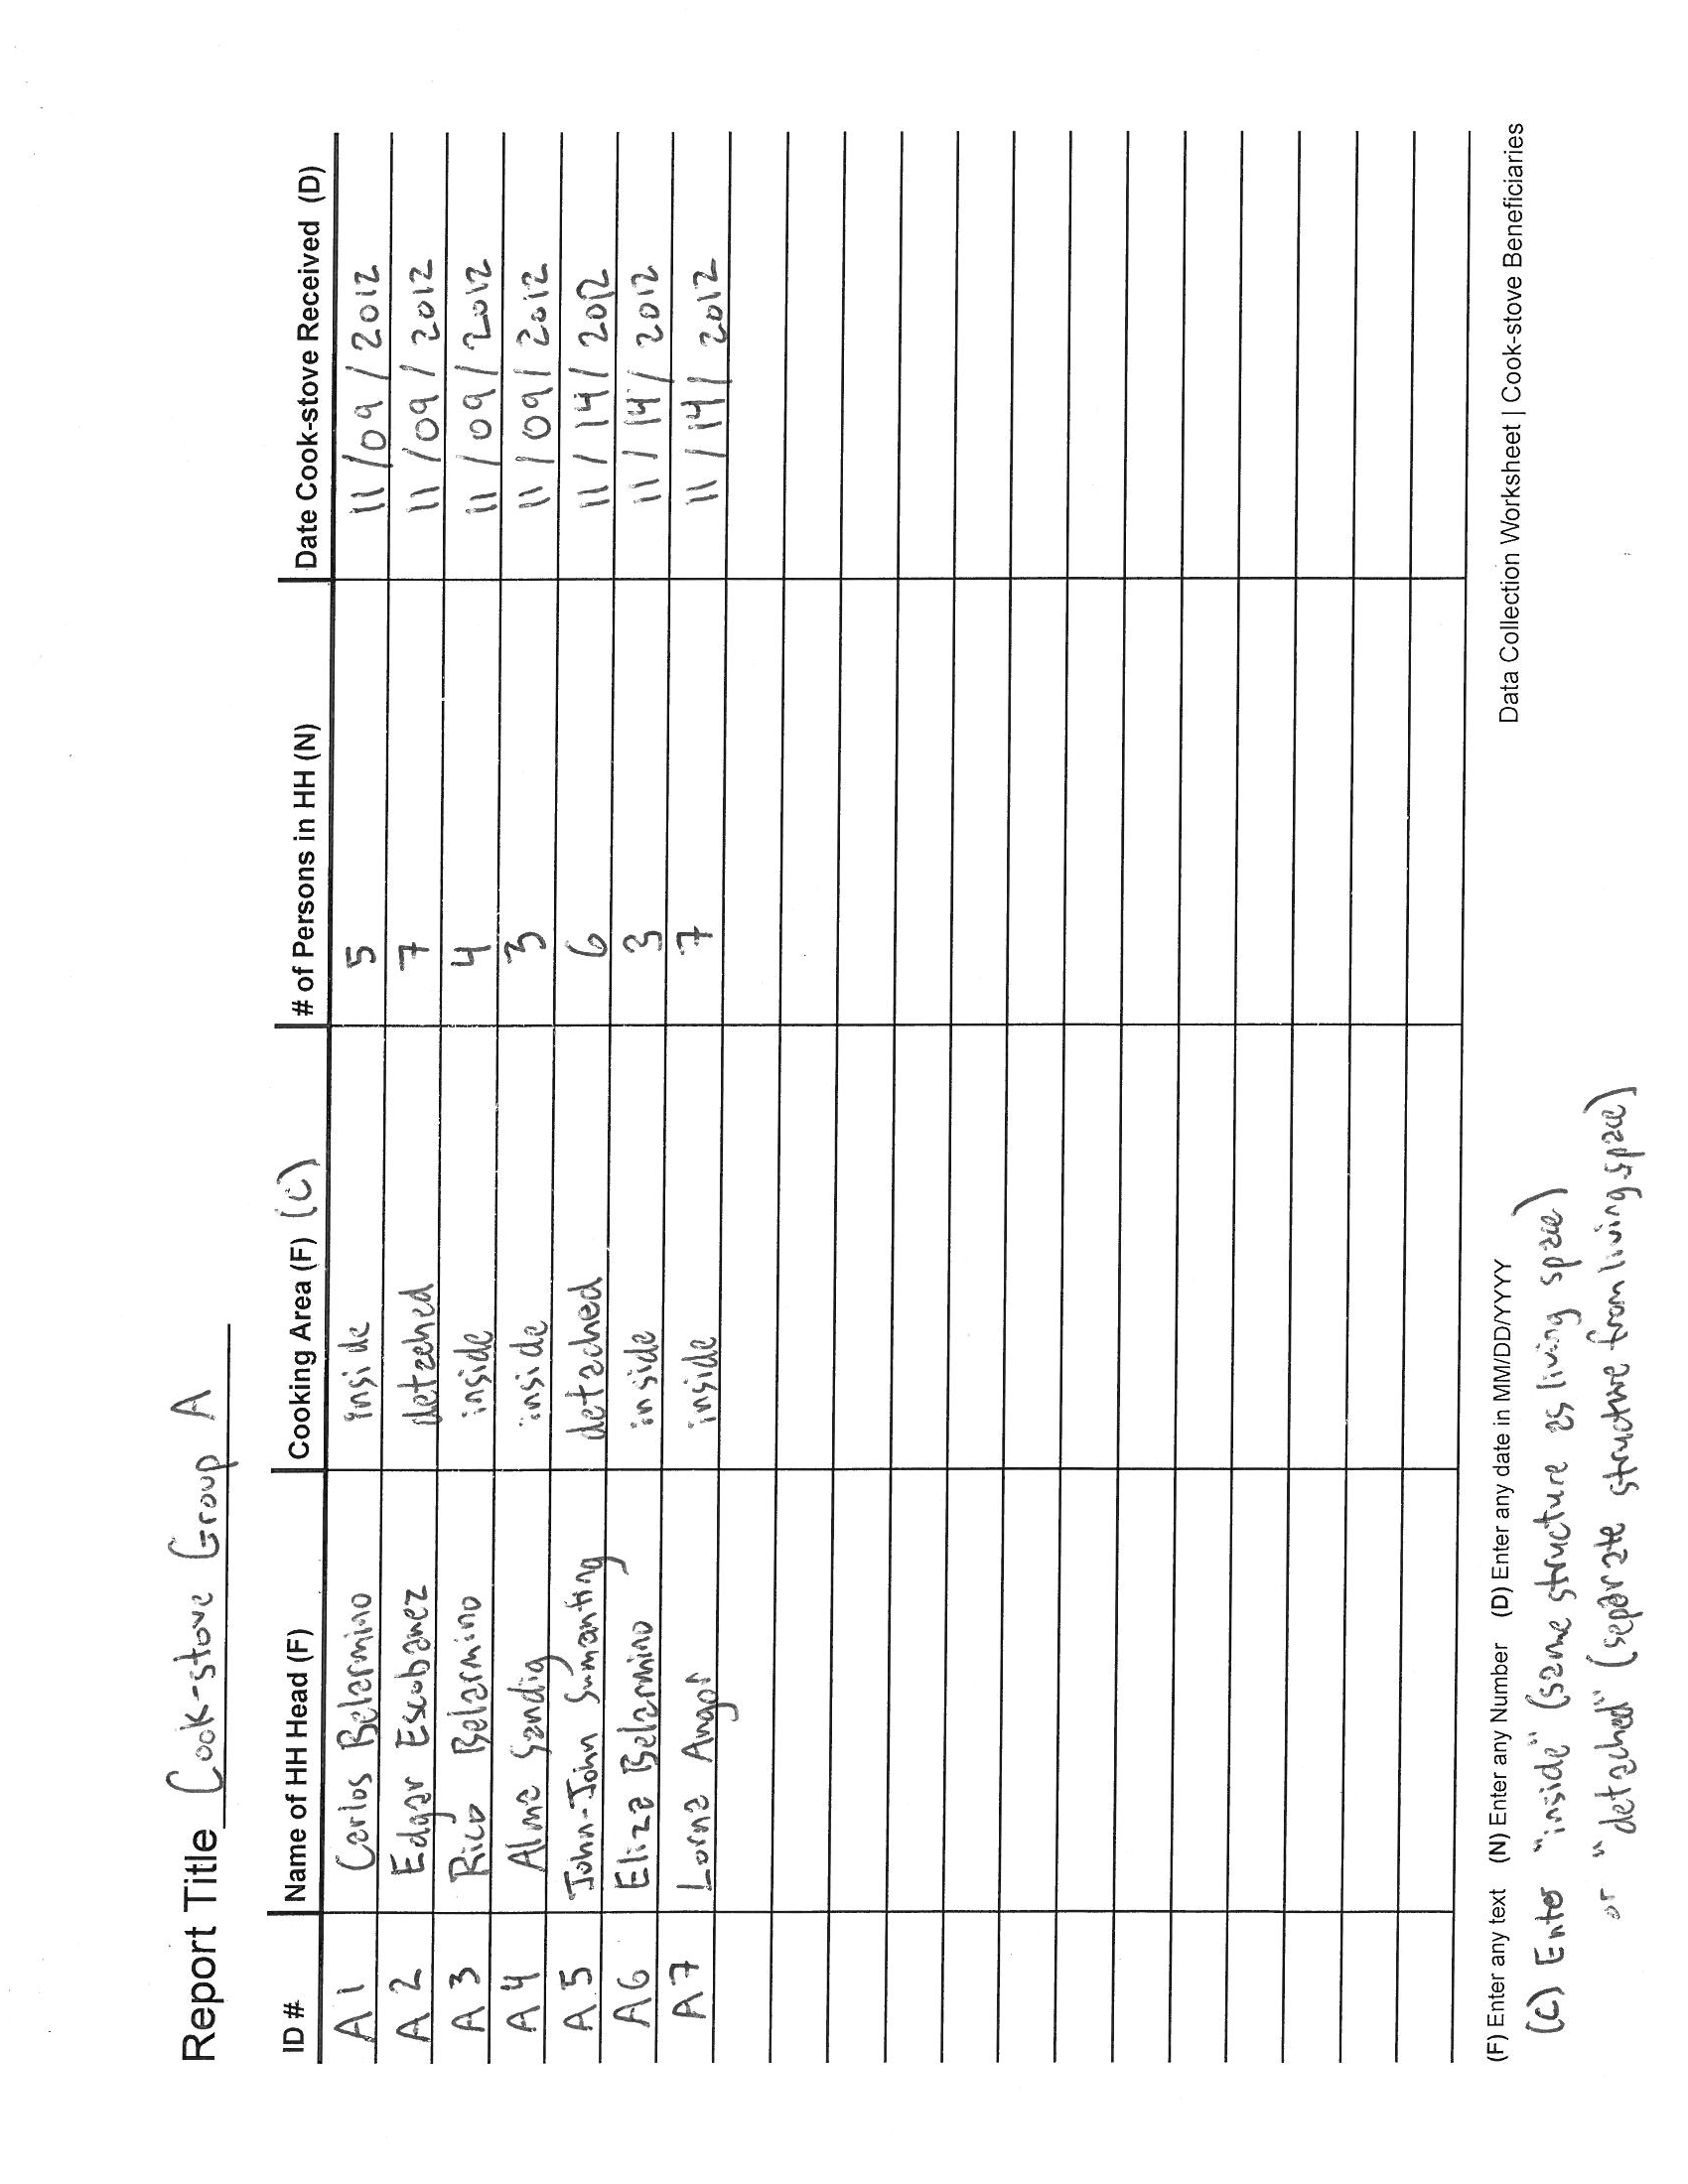 Report Title Cook-stove Group A
ID # Name of HH Head (F) Cooking Area (F) (C) # of Persons in HH (N) Date Cook-stove Received (D)
A1 Carlos Belarmino inside 5 11/09/2012
A2 Edgar Escobanez detached 7 11/09/2012
A3 Rico Belarmino inside 4 11/09/2012
A4 Alma Gandia inside 3 11/09/2012
A5 John-John Sumanting detached 6 11/14/2012
A6 Eliza Belarmino inside 3 11/14/2012
A7 Lorna Angos inside 7 11/14/2012
(F) Enter any text (N) Enter any Number (D) Enter any date in MM/DD/YYYY Data Collection Worksheet | Cook-stove Beneficiaries
(C) Enter "inside" (same structure as living space)
or "detached" (separate structure from living space)